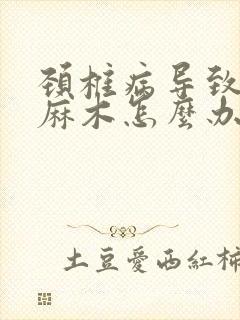 颈椎病导致
麻木怎麼办
土豆愛西紅柿